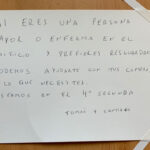 SI ERES UNA PERSONA
MAYOR O ENFERMA EN EL
EDIFICIO Y PREFIERES RESGUARDARTE
PODEMOS AYUDARTE CON TUS COMPRAS
O LO QUE NECESITES.
ESTAMOS EN EL 4º SEGUNDA
TOMÁS Y